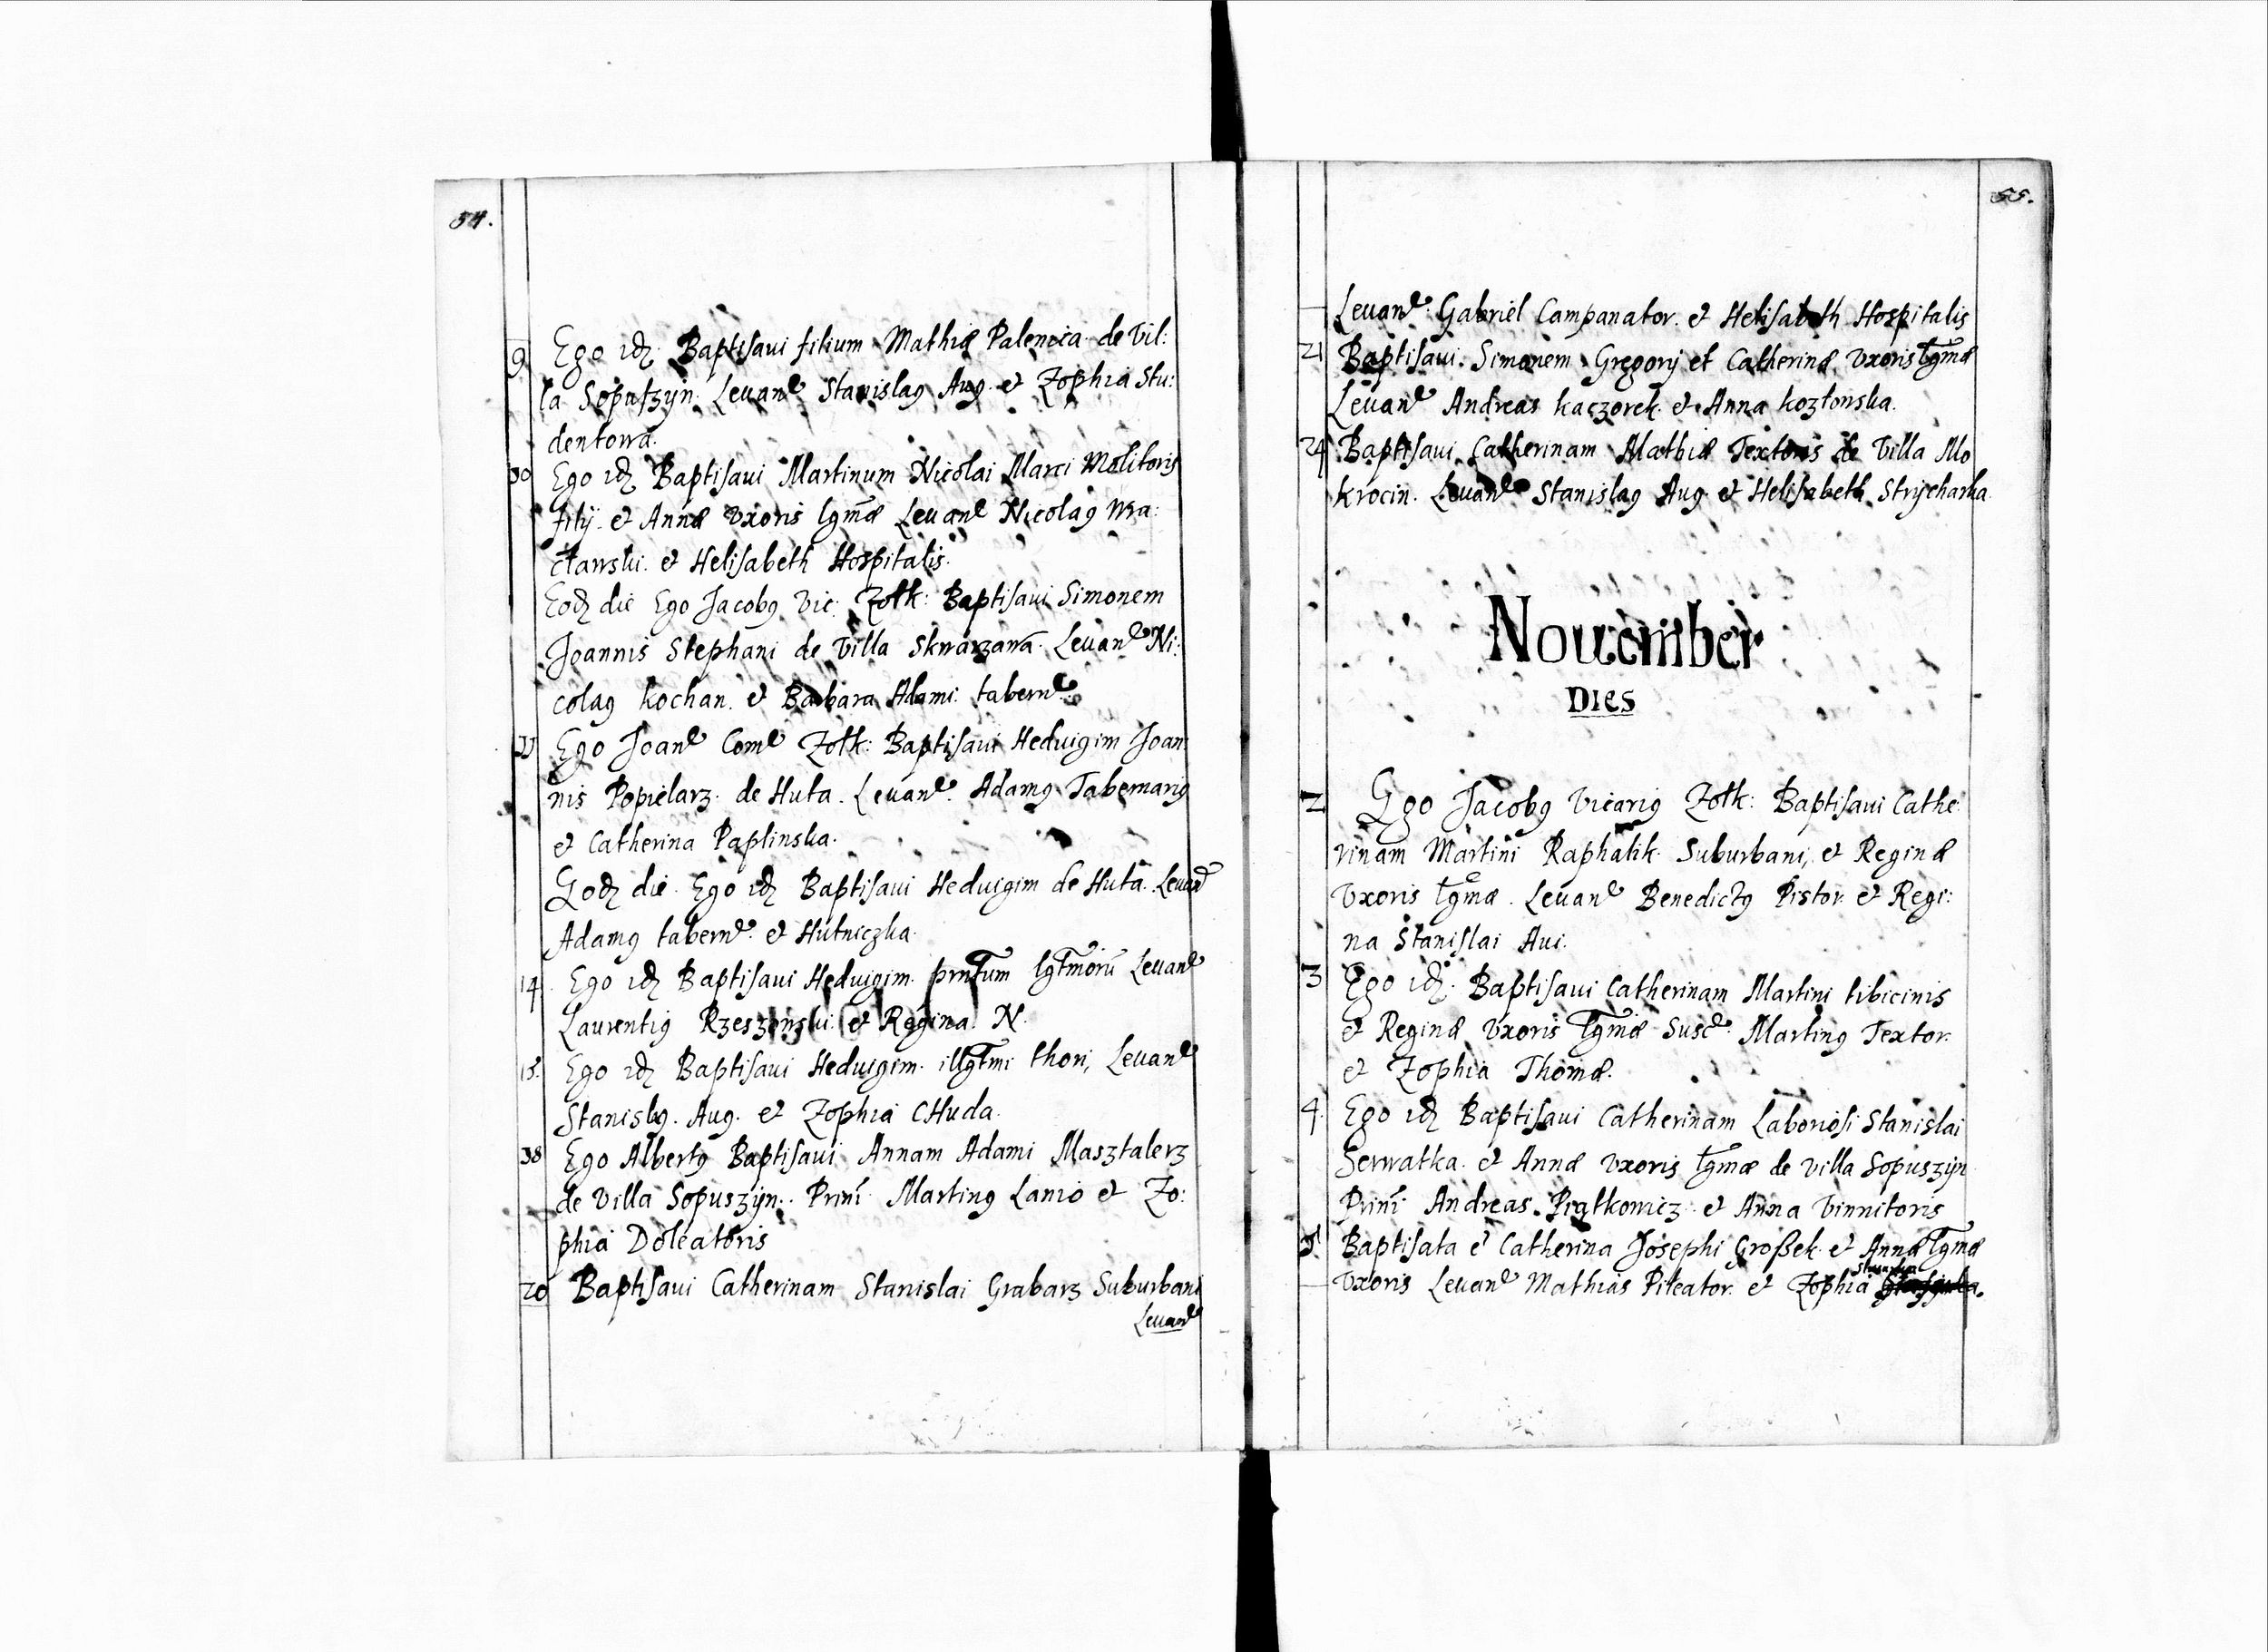 54.
9 Ego idz Baptisaui filium Mathiæ Palenica de Vil:
la Soputzyn Leuane Stanislaus Aug. et Zophia Stu:
dentowa.
30 Ego idz Baptisaui Martinum Nicolai Marci Molitoris
filÿ et Annæ Vxoris lgmæ Leuane Nicolaus Wra:
cławski et Helisabeth Hospitalis.
Eodz die Ego Jacobus Vic: Zołk: Baptisaui Simonem
Joannis Stephani de Villa Skwarzawa. Leuane Ni:
colaus Kochan. et Barbara Adami taberne.
Ego Joane Come Zołk: Baptisaui Heduigim Joan:
nis Popielarz de Huta. Leuane. Adamus Tabernarius
et Catherina Paplinska.
Eodz die Ego idz Baptisaui Heduigim de Huta. Leuane
Adamus taberne. et Hutniczka.
14. Ego idz Baptisaui Heduigim prntum lgtmorū Leuane
Laurentius Rzeszowski et Regina. N.
15. Ego idz Baptisaui Heduigim illgtmi thori, Leuane
Stanislaus. Aug. et Zophia CHuda.
38 Ego Albertus Baptisaui Annam Adami Masztalerz
de Villa Sopuszyn. Prinī Martinus Lanio et Zo:
phia Doleatoris
20 Baptisaui Catherinam Stanislai Grabarz Suburbani
Leuane
55.
Leuane Gabriel Campanator. et Helisabeth Hospitalis
21 Baptisaui Simonem Gregorij et Catherinæ Vxoris lgmæ
Leuane Andreas Kaczorek et Anna Kozłowska.
24 Baptisaui Catherinam Mathiæ Textoris de Villa Mo
krocin. Leuane Stanislaus Aug. et Helisabeth Strycharka
Nouember
DIES
2 Ego Jacobus Vicarius Zołk: Baptisaui Cathe:
rinam Martini Raphalik Suburbani, et Reginæ
Vxoris lgmæ. Leuane Benedictus Pistor et Regi:
na Stanislai Aui.
3 Ego idz Baptisaui Catherinam Martini tibicinis
et Reginæ Vxoris lgmæ Susce Martinus Textor.
et Zophia Thomæ.
4. Ego idz Baptisaui Catherinam Laboriosi Stanislai
Serwatka. et Annæ Vxoris lgmæ de Villa Sopuszyn
Prinī Andreas Piątkowicz et Anna Vinnitoris
5. Baptisata ē Catherina Josephi Großek et Annæ lgmæ
Vxoris Leuane Mathias Pileator et Zophia